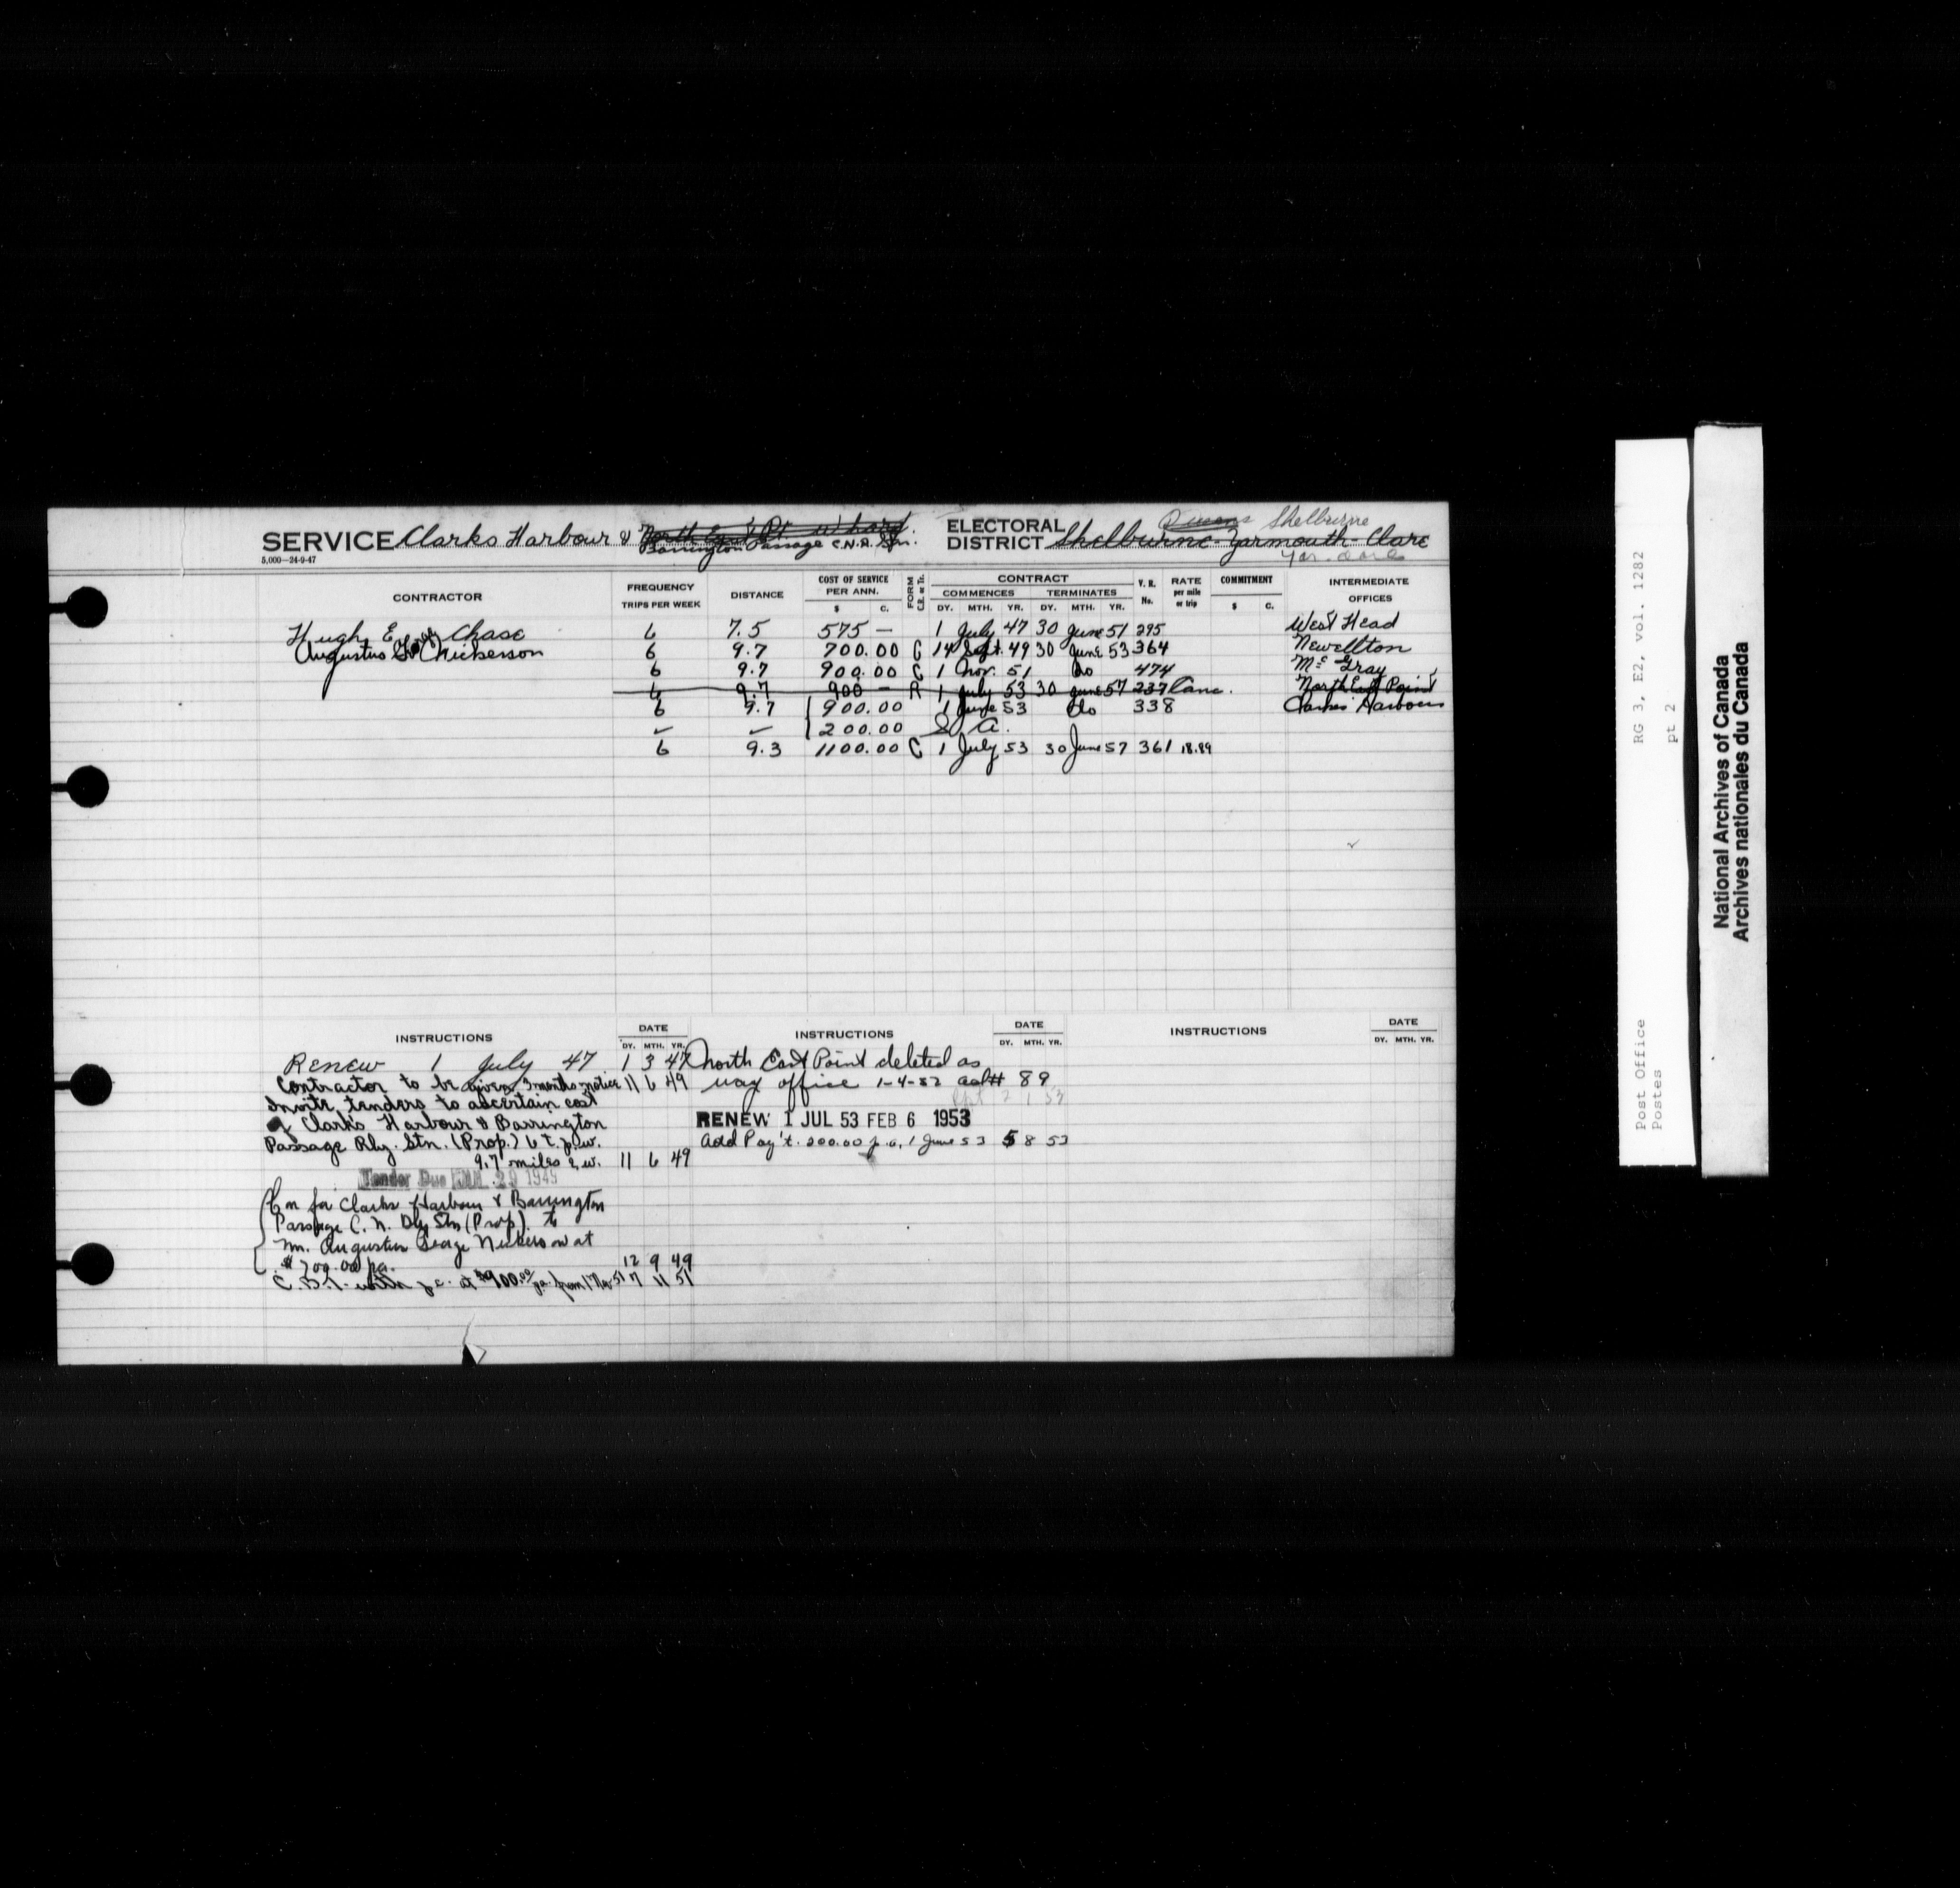 SERVICE Clarks Harbour & North East Pt. Wharf.
Barrington Passage C.N.R. Stn.
5,000—24-9-47
ELECTORAL DISTRICT Shelburne-Yarmouth-Clare
Queens Shelburne
CONTRACTOR
FREQUENCY TRIPS PER WEEK
DISTANCE
COST OF SERVICE PER ANN. $ C.
FORM
CONTRACT
COMMENCES DY. MTH. YR.
TERMINATES DY. MTH. YR.
V. R. No.
RATE per mile or trip
COMMITMENT $ C.
INTERMEDIATE OFFICES
Hugh E. Chase 6 7.5 575 — 1 July 47 30 June 51 295 West Head
Augustus George Nickerson 6 9.7 700.00 C 14 Sept. 49 30 June 53 364 Newellton
6 9.7 900.00 C 1 Nov. 51 do 474 Mc Gray
6 9.7 900 — R 1 July 53 30 June 57 237 Canc. North East Point
6 9.7 900.00 1 June 53 do 338 Clarks Harbour
200.00 S. A.
6 9.3 1100.00 C 1 July 53 30 June 57 361 18.89
INSTRUCTIONS
DATE
DY. MTH. YR.
Renew 1 July 47 1 3 47
Contractor to be given 3 months notice 11 6 49
Invite tenders to ascertain cost
of Clarks Harbour & Barrington
Passage Rly. Stn. (Prop.) 6 t.p.w.
9.7 miles & w. 11 6 49
Tender Due 29 1949
Con for Clarks Harbour & Barrington
Passage C. N. Rly Stn (Prop). to
Mr. Augustus George Nickerson at
$700.00 pa. 12 9 49
at $900.00 pa. from 1 Nov 51 7 11 51
INSTRUCTIONS
DATE
DY. MTH. YR.
North East Point deleted as
way office 1-4-52 89
RENEW 1 JUL 53 FEB 6 1953
Add Pay't. 200.00 p.a. 1 June 53 5 8 53
INSTRUCTIONS
DATE
DY. MTH. YR.
Post Office
Postes
RG 3, E2, vol. 1282
pt 2
National Archives of Canada
Archives nationales du Canada